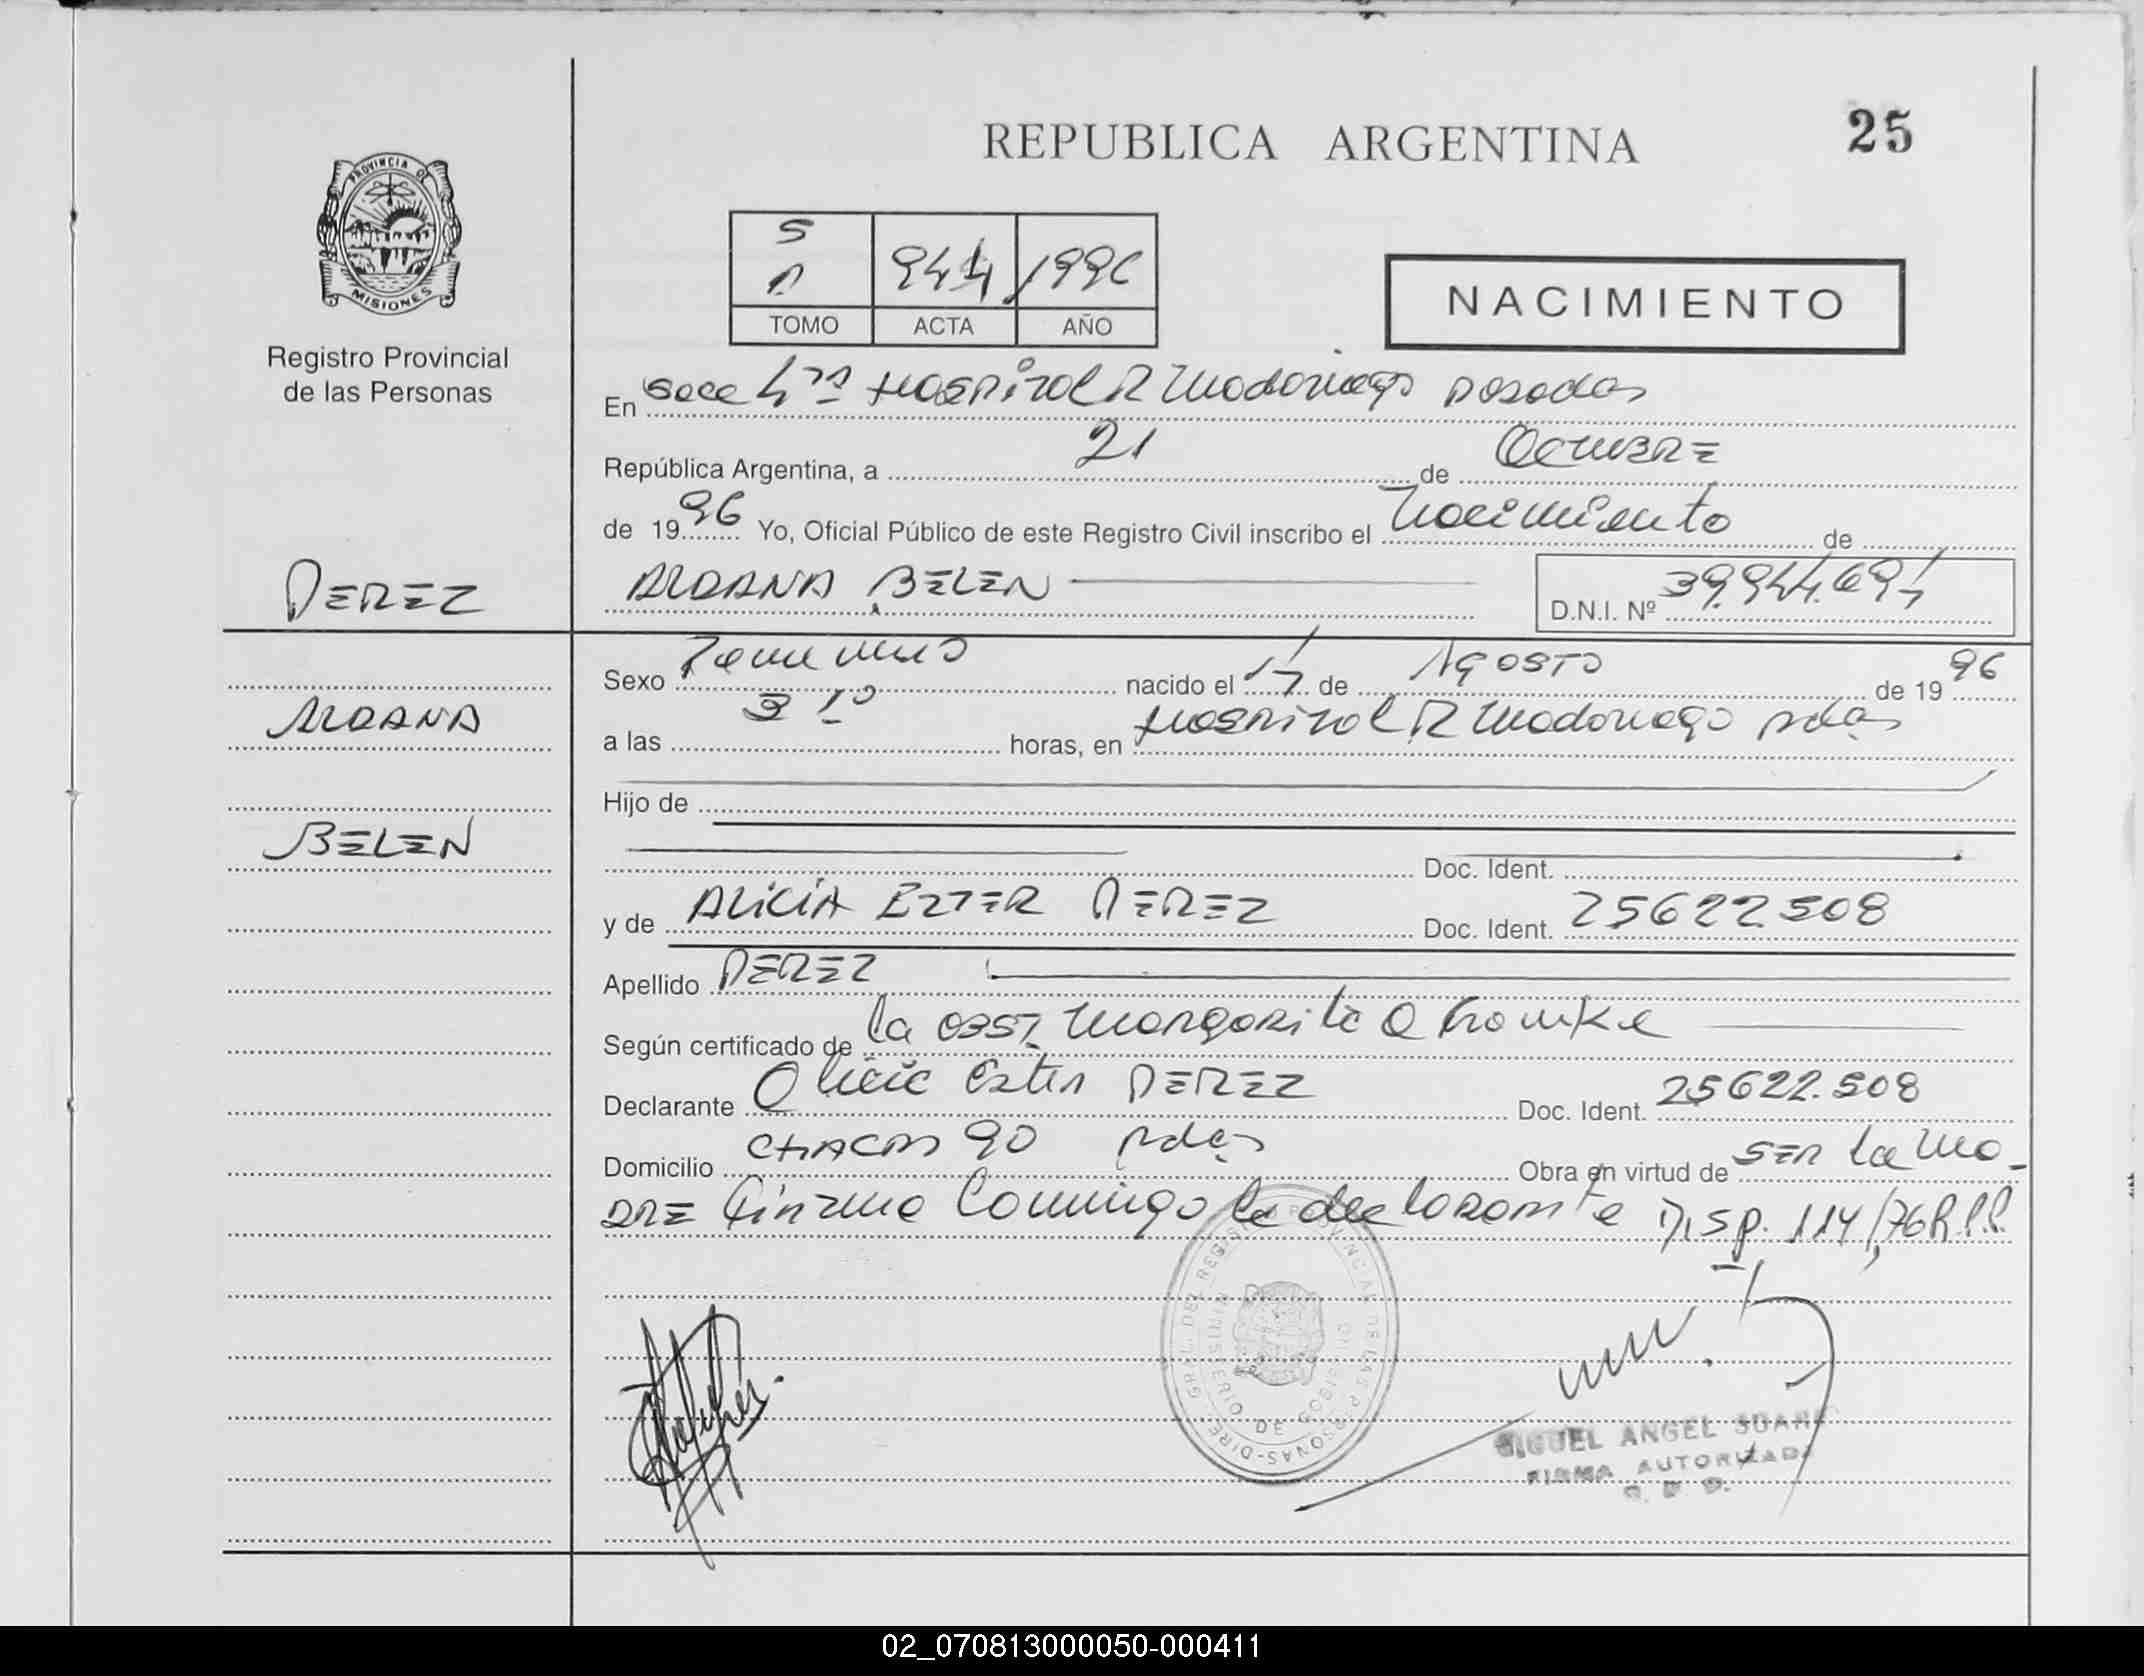 REPUBLICA ARGENTINA
25
PROVINCIA DE
MISIONES
Registro Provincial
de las Personas
5
P
944
1996
TOMO
ACTA
AÑO
NACIMIENTO
En Secc 4ta Hospital R Madariaga Posadas
República Argentina, a 21 de Octubre
de 1996 Yo, Oficial Público de este Registro Civil inscribo el Nacimiento de
PEREZ
ALDANA BELEN
D.N.I. Nº 39.944.697
Sexo Femenino nacido el 17 de AGOSTO de 1996
ALDANA
a las 3 10 horas, en Hospital R Madariaga Pdas
Hijo de
BELEN
Doc. Ident.
y de ALICIA EZTER PEREZ Doc. Ident. 25622508
Apellido PEREZ
Según certificado de la OBST. Margarita
Declarante Alicia Ester PEREZ Doc. Ident. 25622.508
Domicilio CHACRA 90 Pdas Obra en virtud de SER la MA-
DRE Firma Conmigo la declarante Disp. 114/76
DIRE. GRAL. DEL REGISTRO PROVINCIAL DE LAS PERSONAS
MINISTERIO DE GOBIERNO
MIGUEL ANGEL SUAREZ
FIRMA AUTORIZADA
02_070813000050-000411